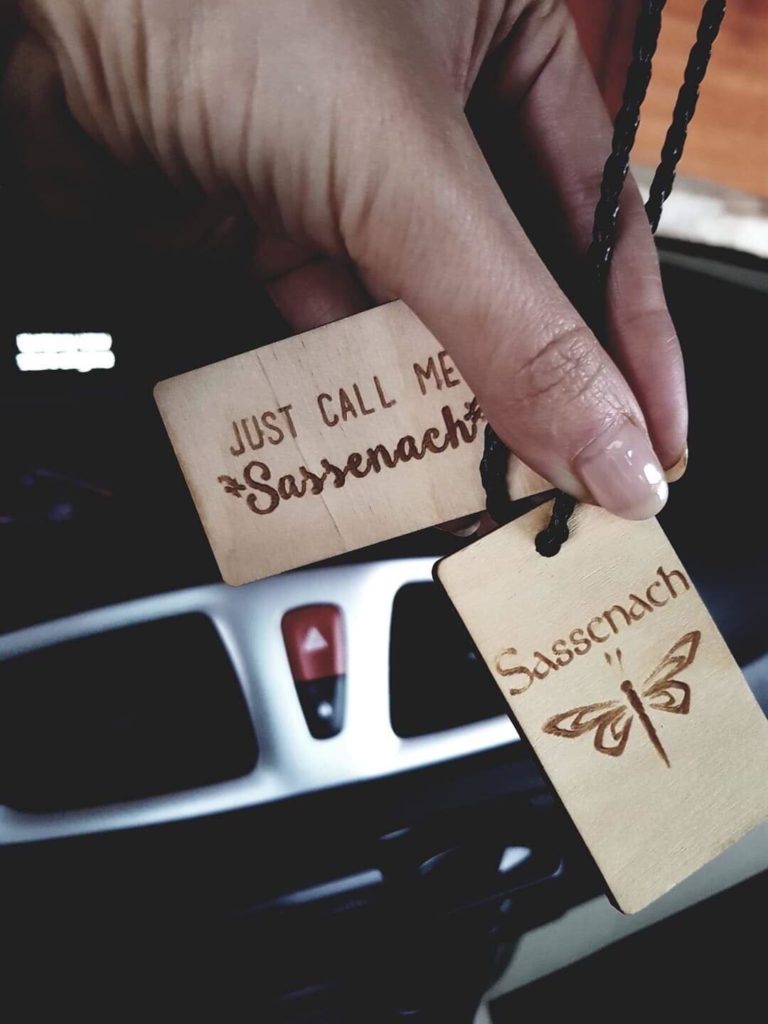 JUST CALL ME
Sassenach
Sassenach